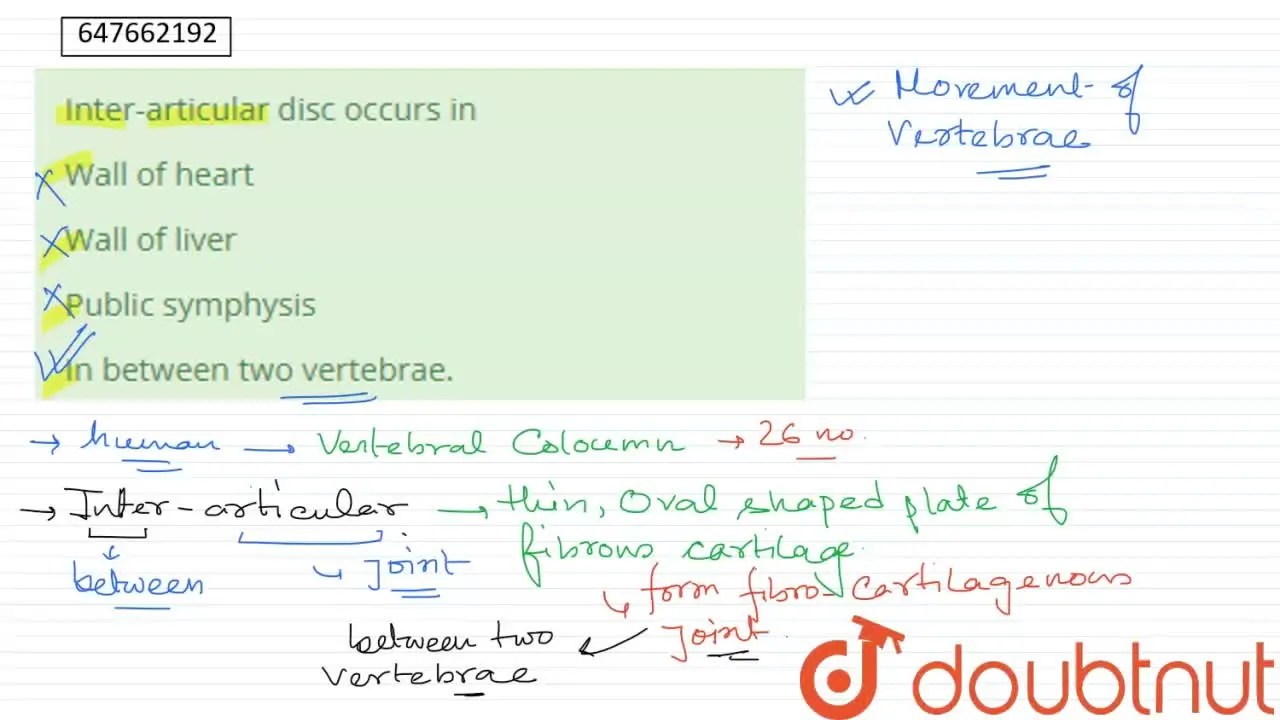 647662192
Inter-articular disc occurs in
Wall of heart
Wall of liver
Public symphysis
In between two vertebrae.
Movement of
Vertebrae
→ human → Vertebral Coloumn → 26 no.
→ Inter-articular → thin, Oval shaped plate of
fibrous cartilage.
between
Joint
form fibro-cartilagenous
Joint
between two
vertebrae
doubtnut